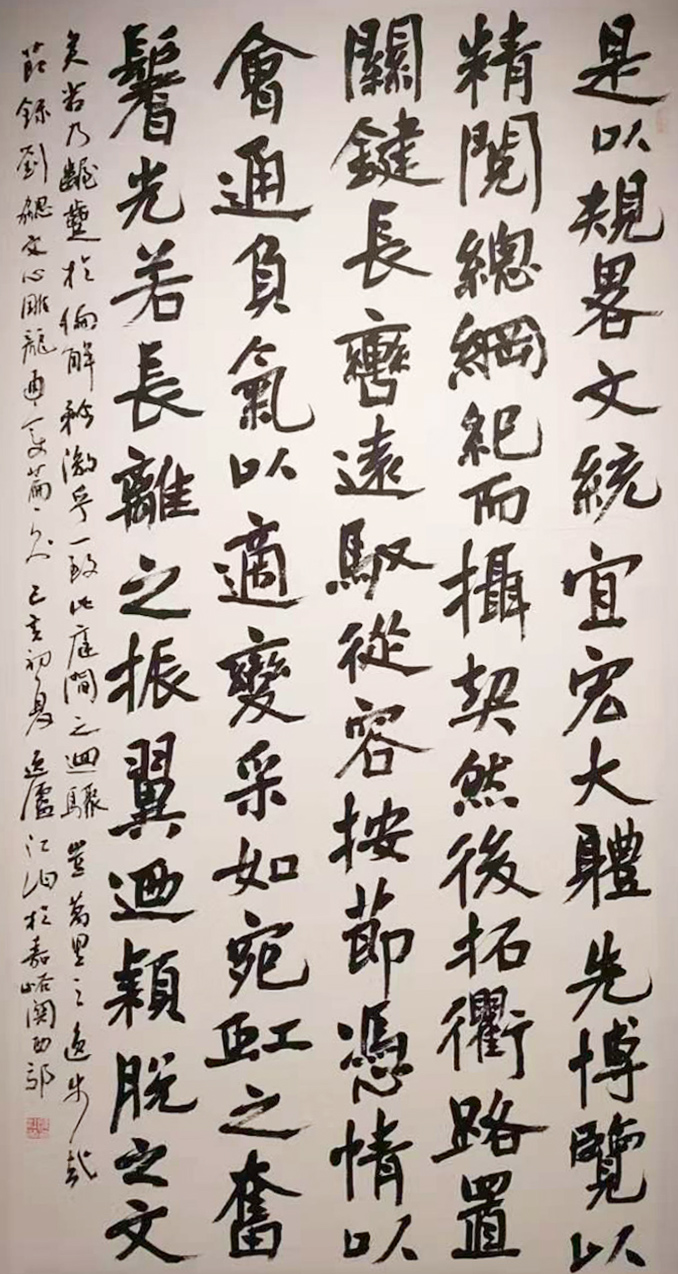 是以規略文統宜宏大體先博覽以
精閱總綱紀而攝契然後拓衢路置
關鍵長轡遠馭從容按節憑情以
會通負氣以適變采如宛虹之奮
鬐光若長離之振翼迺穎脫之文
矣若乃齷齪於偏解矜激乎一致此庭間之迴驟豈萬里之逸步哉
節錄劉勰文心雕龍通變篇 己亥初夏 江 於嘉峪關西部